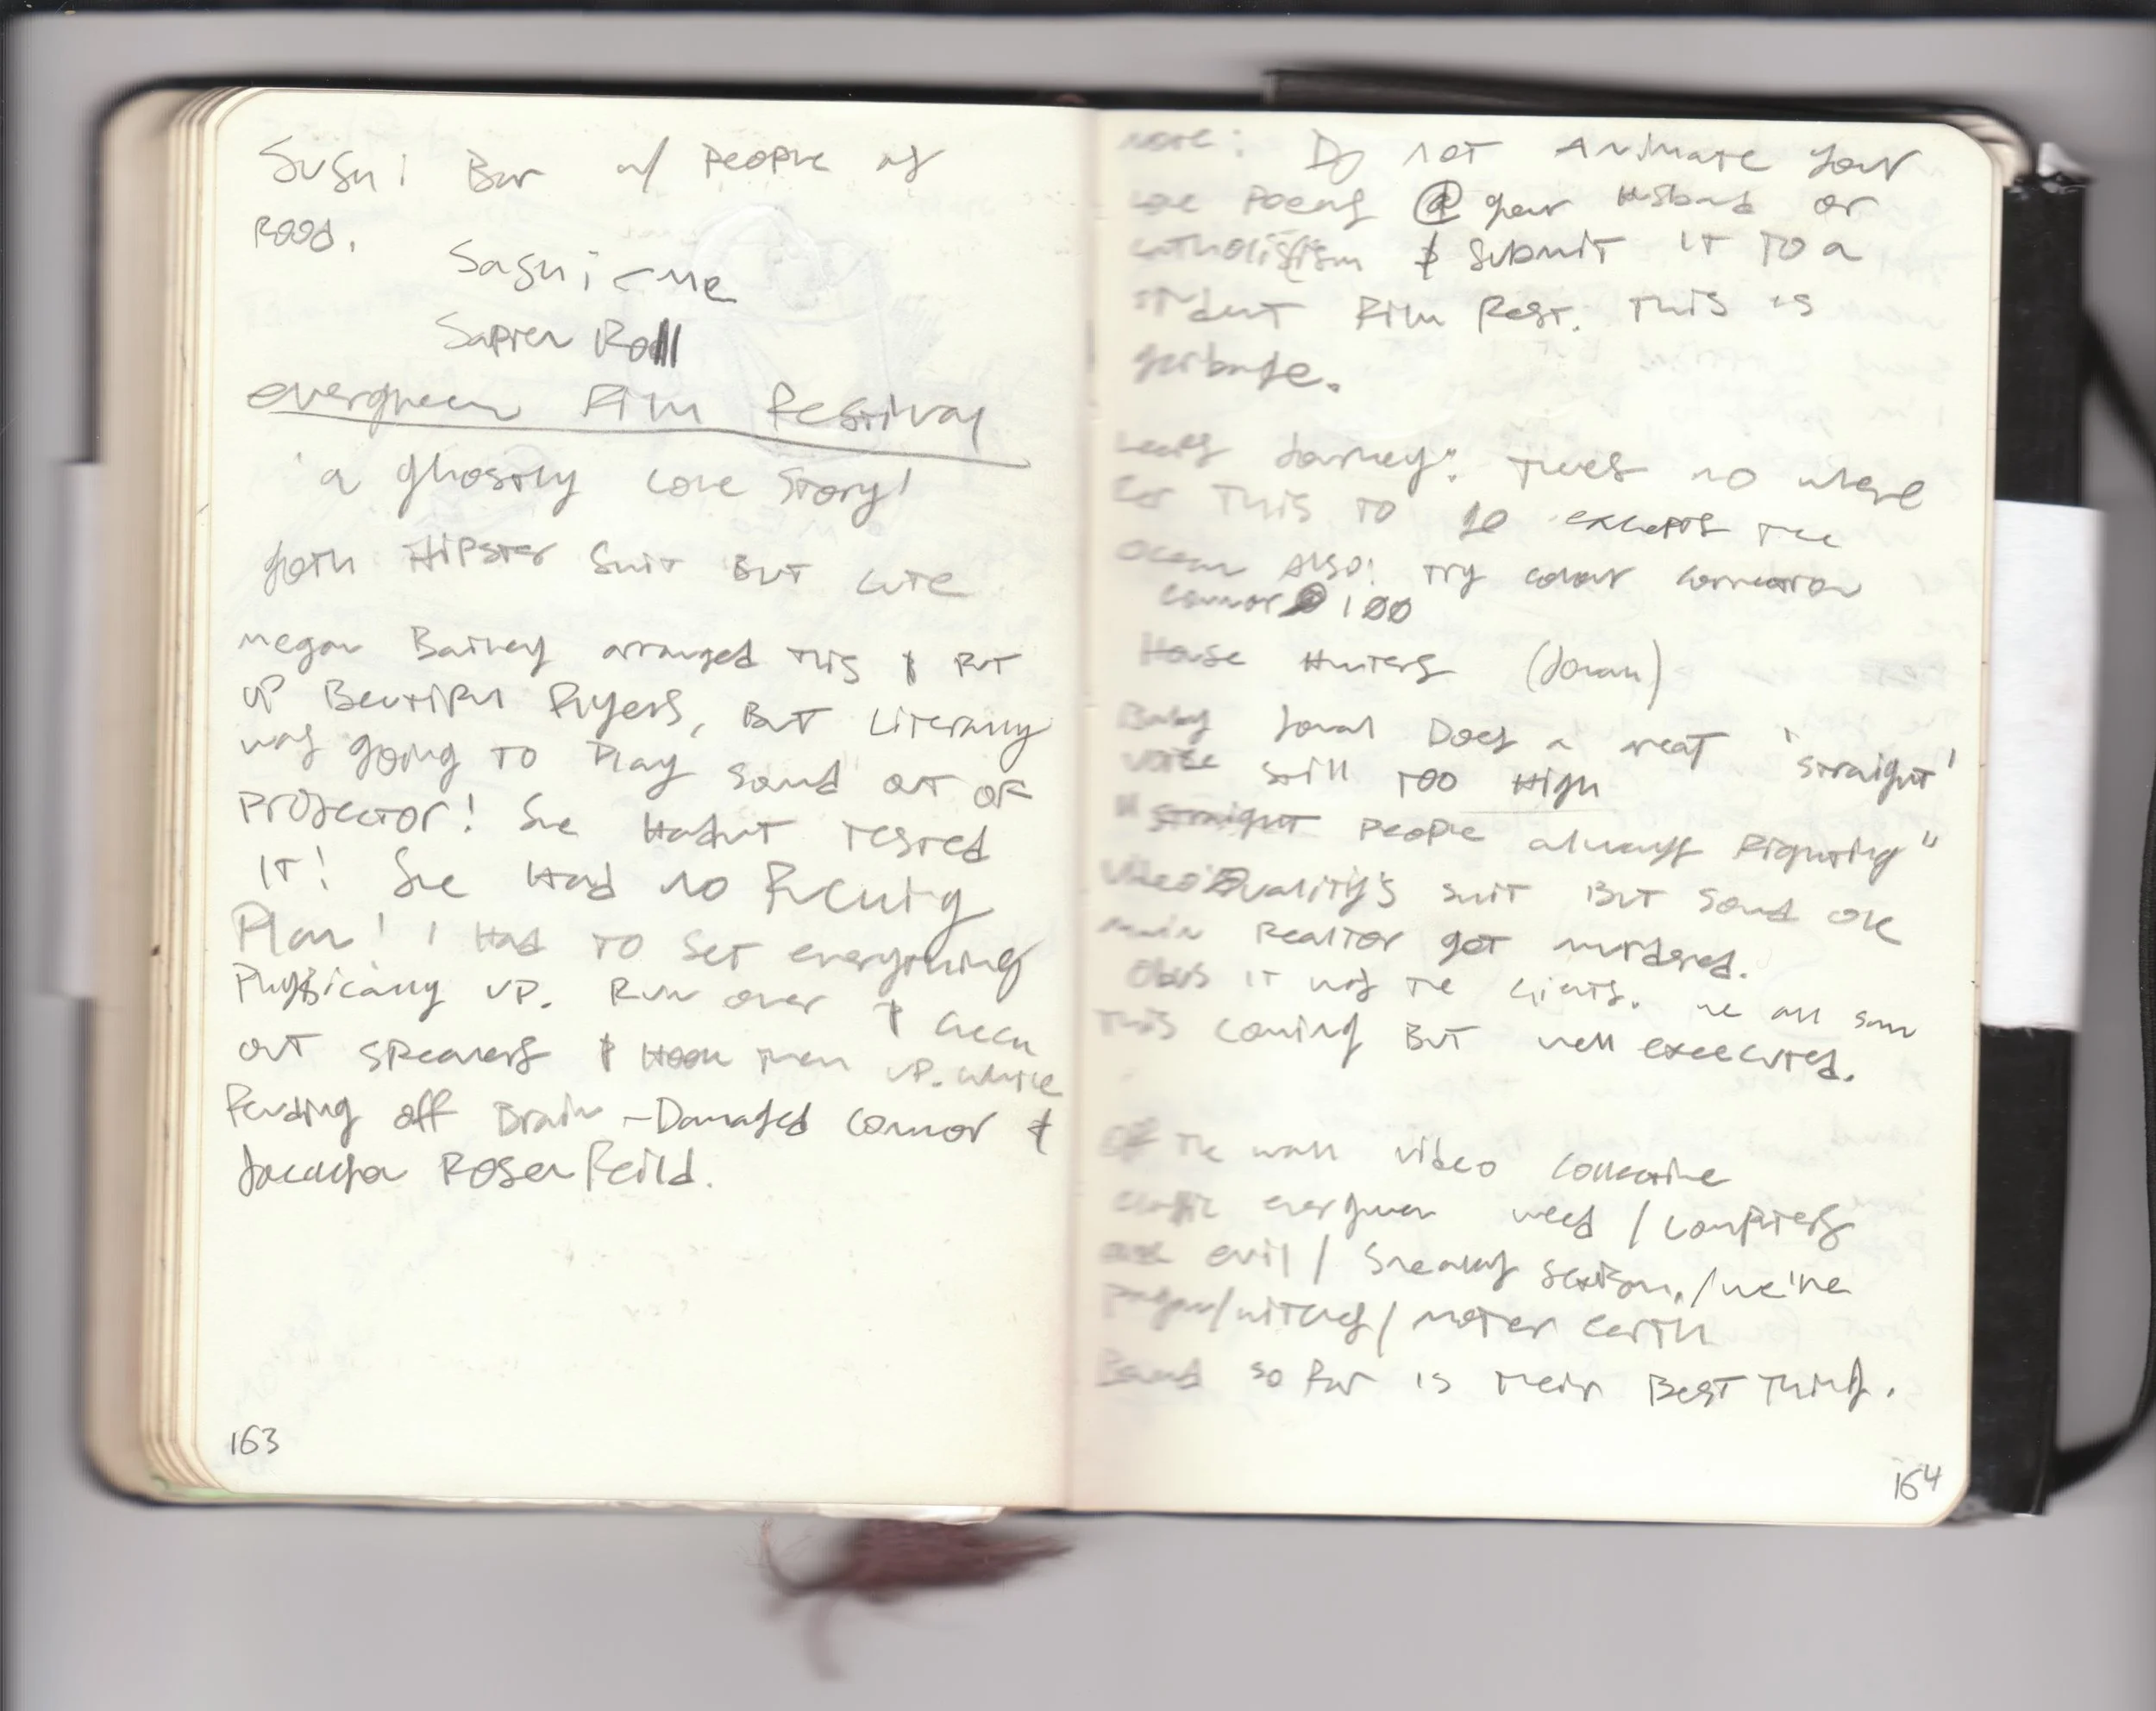 Sushi Bar w/ people as
food.
Sashi-me
Sapien Roll
evergreen Film Festival
'a ghostly love story'
goth Hipster Shit But cute
megan Bailey arranged this & Put
up Beutiful flyers, But Literally
was going to Play sound out of
projector! She Hadnt tested
it! She Had no fucking
Plan! I Had to set everything
Physically up. Run over & check
out speakers & Hook them up. while
fending off Brain-Damaged Connor &
Rosenfeild.
163
note: Do not Animate your
love poems @ your Husband or
catholisism & submit it to a
student film fest. This is
garbage.
Leafs Journey: Theres no where
for this to go excepts the
ocean Also: try colour correction
connor @ 100
House Hunters (Jonah)
Baby Jonah Does a neat 'straight'
voice still too High
"straight people always fighting"
video Quality's shit But sound ok
main Realtor got murdered.
Obvs it was the clients. we all saw
this coming But well executed.
off the wall video collective
classic evergreen weed / computers
are evil / sneaky sexism, / we're
pagan/witches/ mother earth
Band so far is their Best Thing.
164